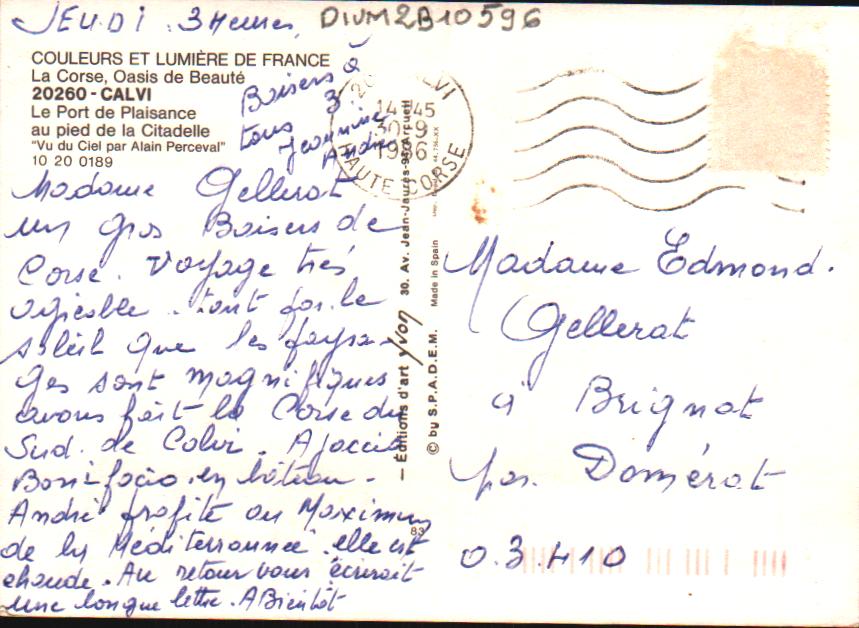 JEUDI 3 Heures,
DIVM2B10596
COULEURS ET LUMIÈRE DE FRANCE
La Corse, Oasis de Beauté
20260 - CALVI
Le Port de Plaisance
au pied de la Citadelle
"Vu du Ciel par Alain Perceval"
10 20 0189
Baisers à
tous 3
Jeannine
André
CALVI
14 45
30-9
1986
HAUTE CORSE
Madame Gellerat
un gros Baisers de
Corse. Voyage très
agréable. tant par le
soleil que les paysa-
ges sont magnifiques
avons fait la Corse du
Sud. de Calvi. Ajaccio
Bonifacio en bâteau -
André profite au Maximum
de la Méditerrannée elle est
chaude. Au retour vous écrirait
une longue lettre. A Bientôt
— Éditions d'art yvon 30. Av. Jean-Jaurès-94-Arcueil
© by S.P.A.D.E.M. Made in Spain
83
Madame Edmond.
Gellerat
à Brignat
par Domérat
03410